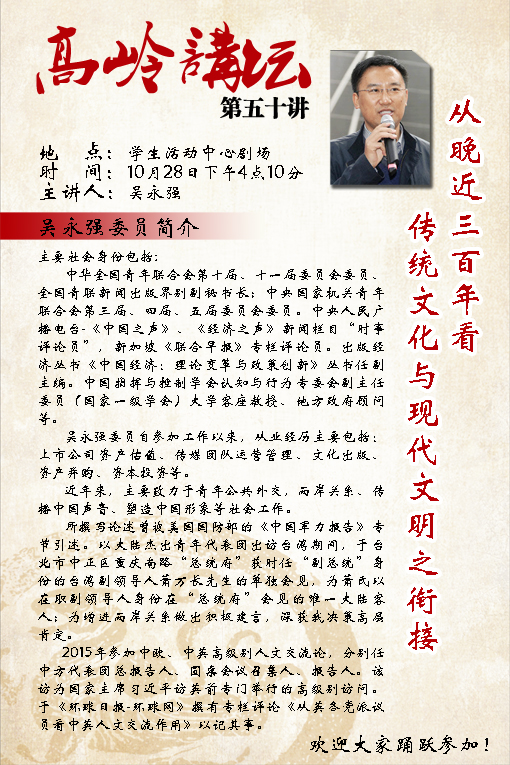 高岭講坛
第五十讲
地　　点：学生活动中心剧场
时　　间：10月28日下午4点10分
主讲人：吴永强
从晚近三百年看
传统文化与现代文明之衔接
吴永强委员简介
主要社会身份包括：
中华全国青年联合会第十届、十一届委员会委员、
全国青联新闻出版界别副秘书长；中央国家机关青年
联合会第三届、四届、五届委员会委员。中央人民广
播电台-《中国之声》、《经济之声》新闻栏目“时事
评论员”，新加坡《联合早报》专栏评论员。出版经
济丛书《中国经济：理论变革与政策创新》丛书任副
主编。中国指挥与控制学会认知与行为专委会副主任
委员（国家一级学会）大学客座教授、地方政府顾问
等。
吴永强委员自参加工作以来，从业经历主要包括：
上市公司资产估值、传媒团队运营管理、文化出版、
资产并购、资本投资等。
近年来，主要致力于青年公共外交，两岸关系、传
播中国声音、塑造中国形象等社会工作。
所撰写论述曾被美国国防部的《中国军力报告》专
节引述。以大陆杰出青年代表团出访台湾期间，于台
北市中正区重庆南路“总统府”获时任“副总统”身
份的台湾副领导人萧万长先生的单独会见，为萧氏以
在职副领导人身份在“总统府”会见的唯一大陆客
人；为增进两岸关系做出积极建言，深获我决策高层
肯定。
2015年参加中欧、中英高级别人文交流论，分别任
中方代表团总报告人、圆桌会议召集人、报告人。该
访为国家主席习近平访英前专门举行的高级别访问。
于《环球日报-环球网》撰有专栏评论《从英各党派议
员看中英人文交流作用》以记其事。
欢迎大家踊跃参加！